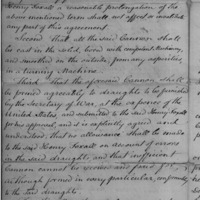 Henry Foxall a reasonable prolongation of the
above mentioned term shall not affect or invalidate
any part of this agreement.
Second That all the said Cannon shall
be cast in the solid, bored with
and smoothed on the outside, from any asperities
in a turning Machine.
Third That the aforesaid Cannon shall
be formed agreeably to draughts to be furnished
by the Secretary of War, at the expense of the
United States, and submitted to the said Henry Foxall
for his approval, and it is explicitly agreed and
understood, that no allowance shall be made
to the said Henry Foxall on account of errors
in the said draughts, and that
Cannon cannot be received and paid for
although formed in every particular, conformably
to the said draughts.